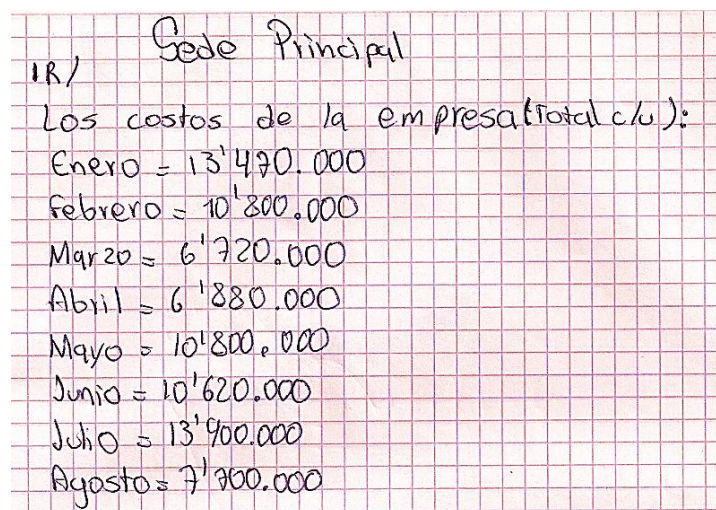 Sede Principal
1R/
Los costos de la empresa (Total c/u):
Enero = 13'470.000
Febrero = 10'800.000
Marzo = 6'720.000
Abril = 6'880.000
Mayo = 10'800.000
Junio = 10'620.000
Julio = 13'900.000
Agosto = 7'700.000